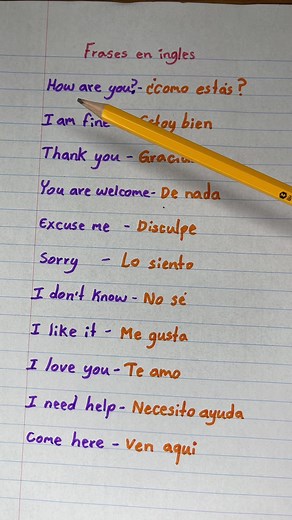 Frases en ingles
How are you? - ¿como estás?
I am fine Estoy bien
Thank you - Gracias
You are welcome - De nada
Excuse me - Disculpe
Sorry - Lo siento
I don't know - No sé
I like it - Me gusta
I love you - Te amo
I need help - Necesito ayuda
Come here - Ven aqui